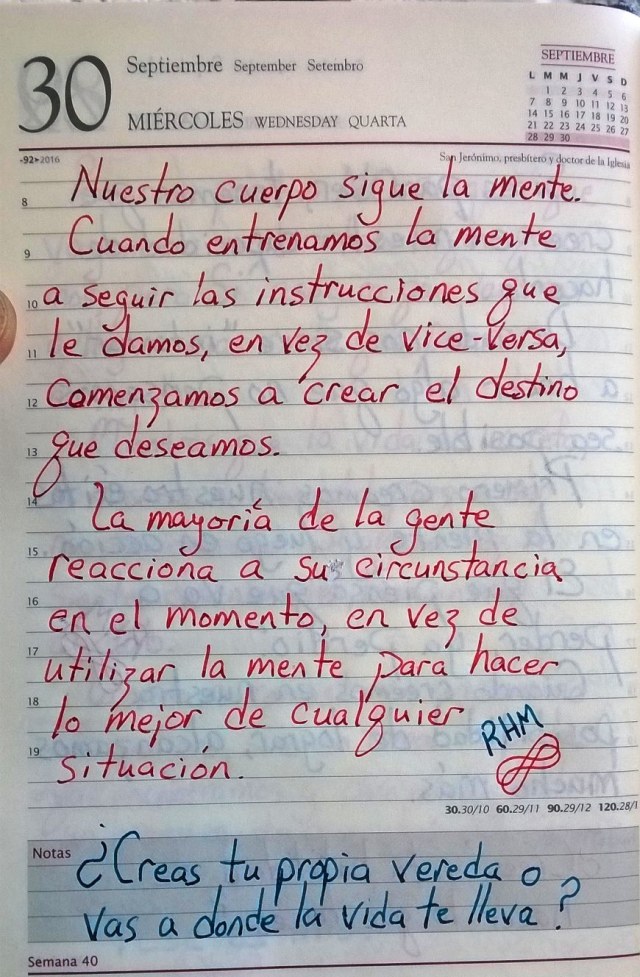 30
Septiembre September Setembro
MIÉRCOLES WEDNESDAY QUARTA
SEPTIEMBRE
L M M J V S D
1 2 3 4 5 6
7 8 9 10 11 12 13
14 15 16 17 18 19 20
21 22 23 24 25 26 27
28 29 30
-92▸2016
San Jerónimo, presbítero y doctor de la Iglesia
8 Nuestro cuerpo sigue la mente.
9 Cuando entrenamos la mente
10 a seguir las instrucciones que
11 le damos, en vez de vice-versa,
12 Comenzamos a crear el destino
13 que deseamos.
14 La mayoría de la gente
15 reacciona a su circunstancia
16 en el momento, en vez de
17 utilizar la mente para hacer
18 lo mejor de cualquier
19 situación.
RHM
30.30/10 60.29/11 90.29/12 120.28/1
Notas ¿Creas tu propia vereda o
vas a donde la vida te lleva?
Semana 40